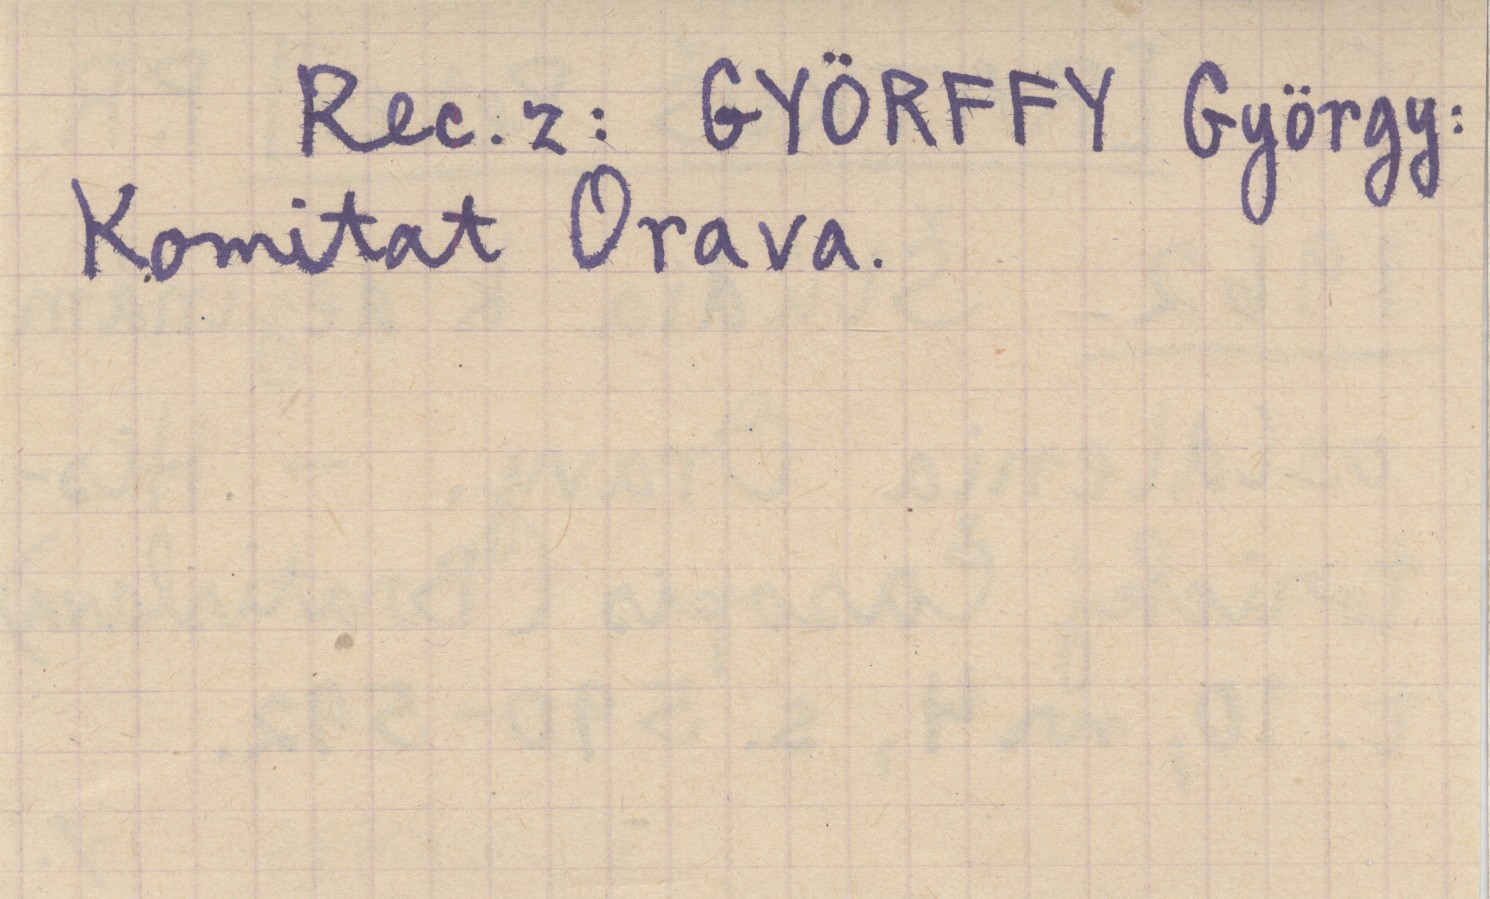 Rec. z: GYÖRFFY György:
Komitat Orava.